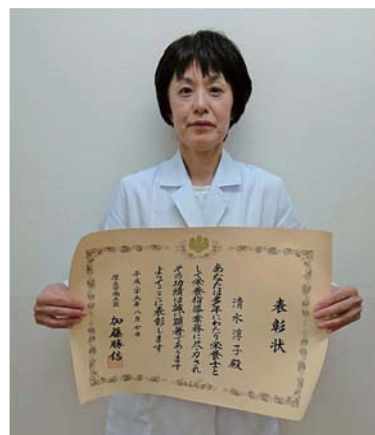 表彰状
清水淳子殿
あなたは多年にわたり栄養士と
して栄養指導業務に尽力され
その功績は誠に顕著であります
よってここに表彰します
平成二十九年八月七日
厚生労働大臣
加藤勝信